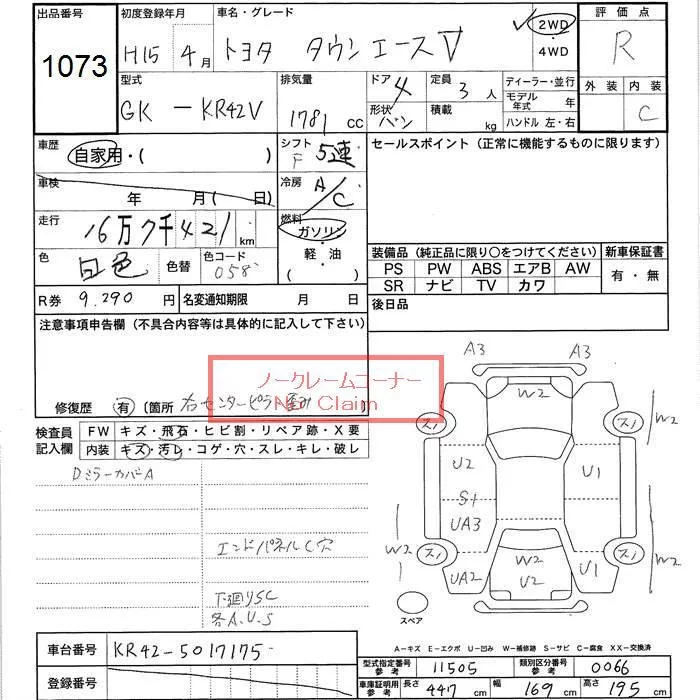 出品番号 初度登録年月 車名・グレード 評価点
1073 H15 年 4 月 トヨタ タウンエースV 2WD ・ 4WD R
型式 排気量 ドア 定員 ディーラー・並行 外装 内装
GK - KR42V 1781 cc 4 3 人 モデル年式 年 C
形状 バン 積載 kg ハンドル 左・右
車歴 自家用・( ) シフト F 5速 セールスポイント (正常に機能するものに限ります)
車検 年 月( 日) 冷房 A/C
走行 16万7千421 km 燃料 ガソリン・軽・油 ( )
色 白色 色替 色コード 058
装備品 (純正品に限り〇をつけてください) 新車保証書
PS PW ABS エアB AW 有・無
SR ナビ TV カワ
R券 9,290 円 名変通知期限 月 日 後日品
注意事項申告欄 (不具合内容等は具体的に記入して下さい)
ノークレームコーナー
No Claim
修復歴 有 〔箇所 右センターピラー
検査員記入欄 FW キズ・飛石・ヒビ割・リペア跡・X要
内装 キズ・汚レ・コゲ・穴・スレ・キレ・破レ
DミラーカバーA
エンドパネルC穴
下廻りSC
各A.U.S
A3 A3
W2
U2 U1
S1
UA3
UA2 U1
W2
U2
W2
W2
W2
スペア
A-キズ E-エクボ U-凹み W-補修跡 S-サビ C-腐食 XX-交換済
車台番号 KR42-5017175
登録番号
型式指定番号 参考 11505 類別区分番号 参考 0066
車庫証明用 参考 長さ 447 cm 幅 169 cm 高さ 195 cm